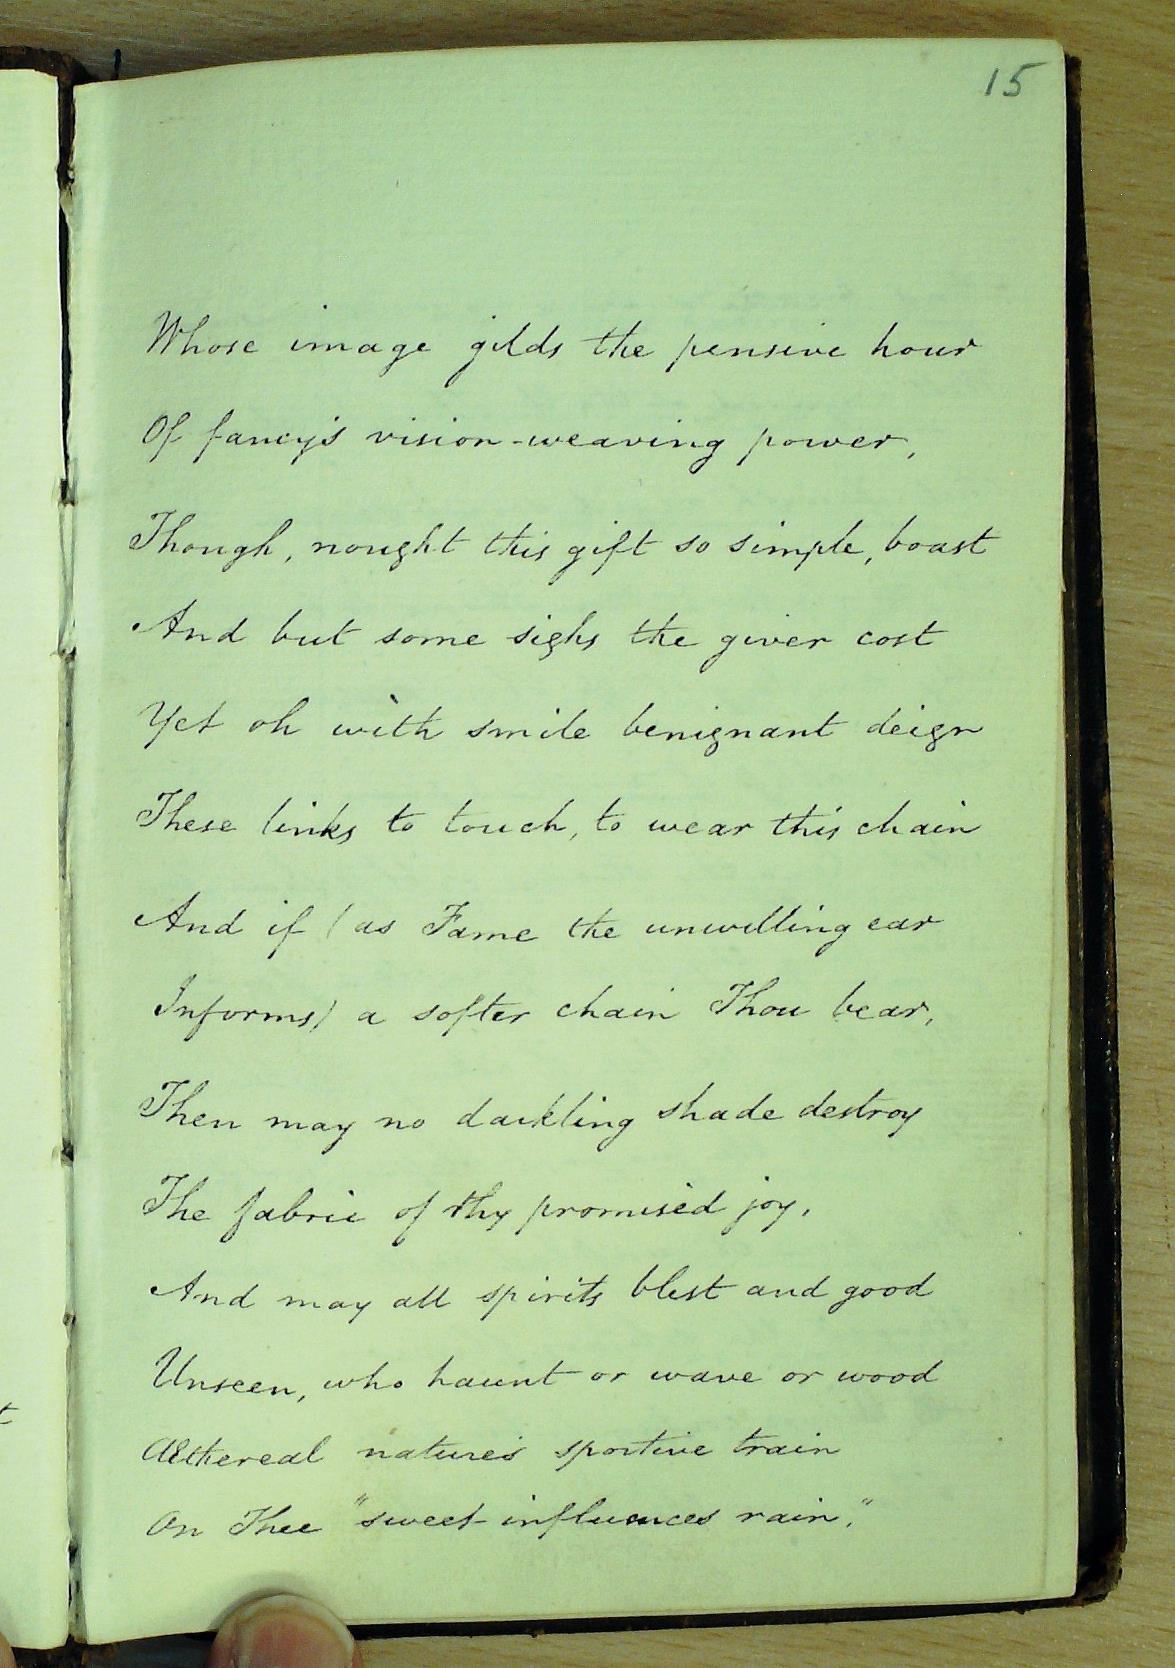 15
Whose image gilds the pensive hour
Of fancy's vision-weaving power,
Though, nought this gift so simple, boast
And but some sighs the giver cost
Yet oh with smile benignant deign
These links to touch, to wear this chain
And if (as Fame the unwilling ear
Informs) a softer chain Thou bear,
Then may no darkling shade destroy
The fabric of thy promised joy,
And may all spirits blest and good
Unseen, who haunt or wave or wood
Æthereal nature's sportive train
On Thee "sweet influences rain."